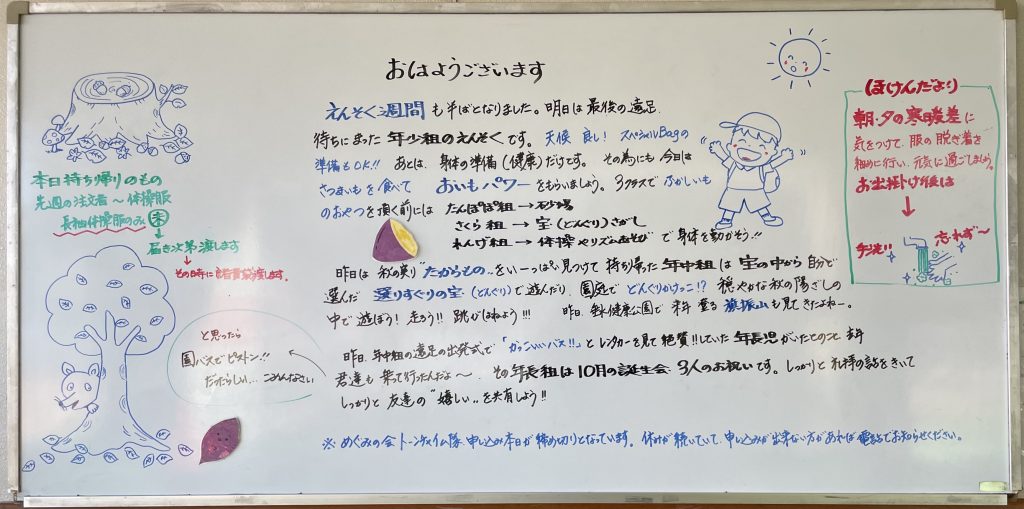 おはようございます
えんそく週間も半ばとなりました。明日は最後の遠足
待ちにまった 年少組のえんそくです。天候 良し! スペシャルBagの
準備もOK!! あとは、身体の準備(健康)だけです。その為にも今日は
さつまいもを食べて おいもパワーをもらいましょう。3クラスで ふかしいも
のおやつを頂く前には たんぽぽ組→砂場
さくら組→宝(どんぐり)さがし
れんげ組→体操やリズムあそび で身体を動かそう!!
昨日は 秋の実り"たからもの"をい〜っぱい見つけて 持ち帰った年中組は 宝の中から自分で
選んだ 選りすぐりの宝(どんぐり)で遊んだり、園庭で どんぐりかけっこ!? 穏やかな秋の陽ざしの
中で遊ぼう! 走ろう!! 跳びはねよう!!! 昨日、健康公園で 来年 登る 山も見てきたよねー。
昨日、年中組の遠足の出発式で「かっこいいバス!!」とレンタカーを見て絶賛!!していた 年長児がいたとのこと
君達も 乗って行ったんだよ〜 その年長組は10月の誕生会 3人のお祝いです。しっかりと 礼拝の話をきいて
しっかりと 友達の"嬉しい"を共有しよう!!
※ めぐみの会トーンチャイム隊 申し込み本日が締め切りとなっています。休みが続いていて、申し込みが出来ない方があれば 電話でお知らせください。
本日持ち帰りのもの
先週の注文者〜体操服
長袖体操服のみ 未
→届き次第渡します
→その時に 渡します。
と思ったら
園バスでピストン!!
だったらしい… ごめんなさい
(ほけんだより)
朝・夕の寒暖差に
気をつけて、服の脱ぎ着を
細めに行い、元気に過ごしましょう。
お出掛け後は
手洗い 忘れず〜